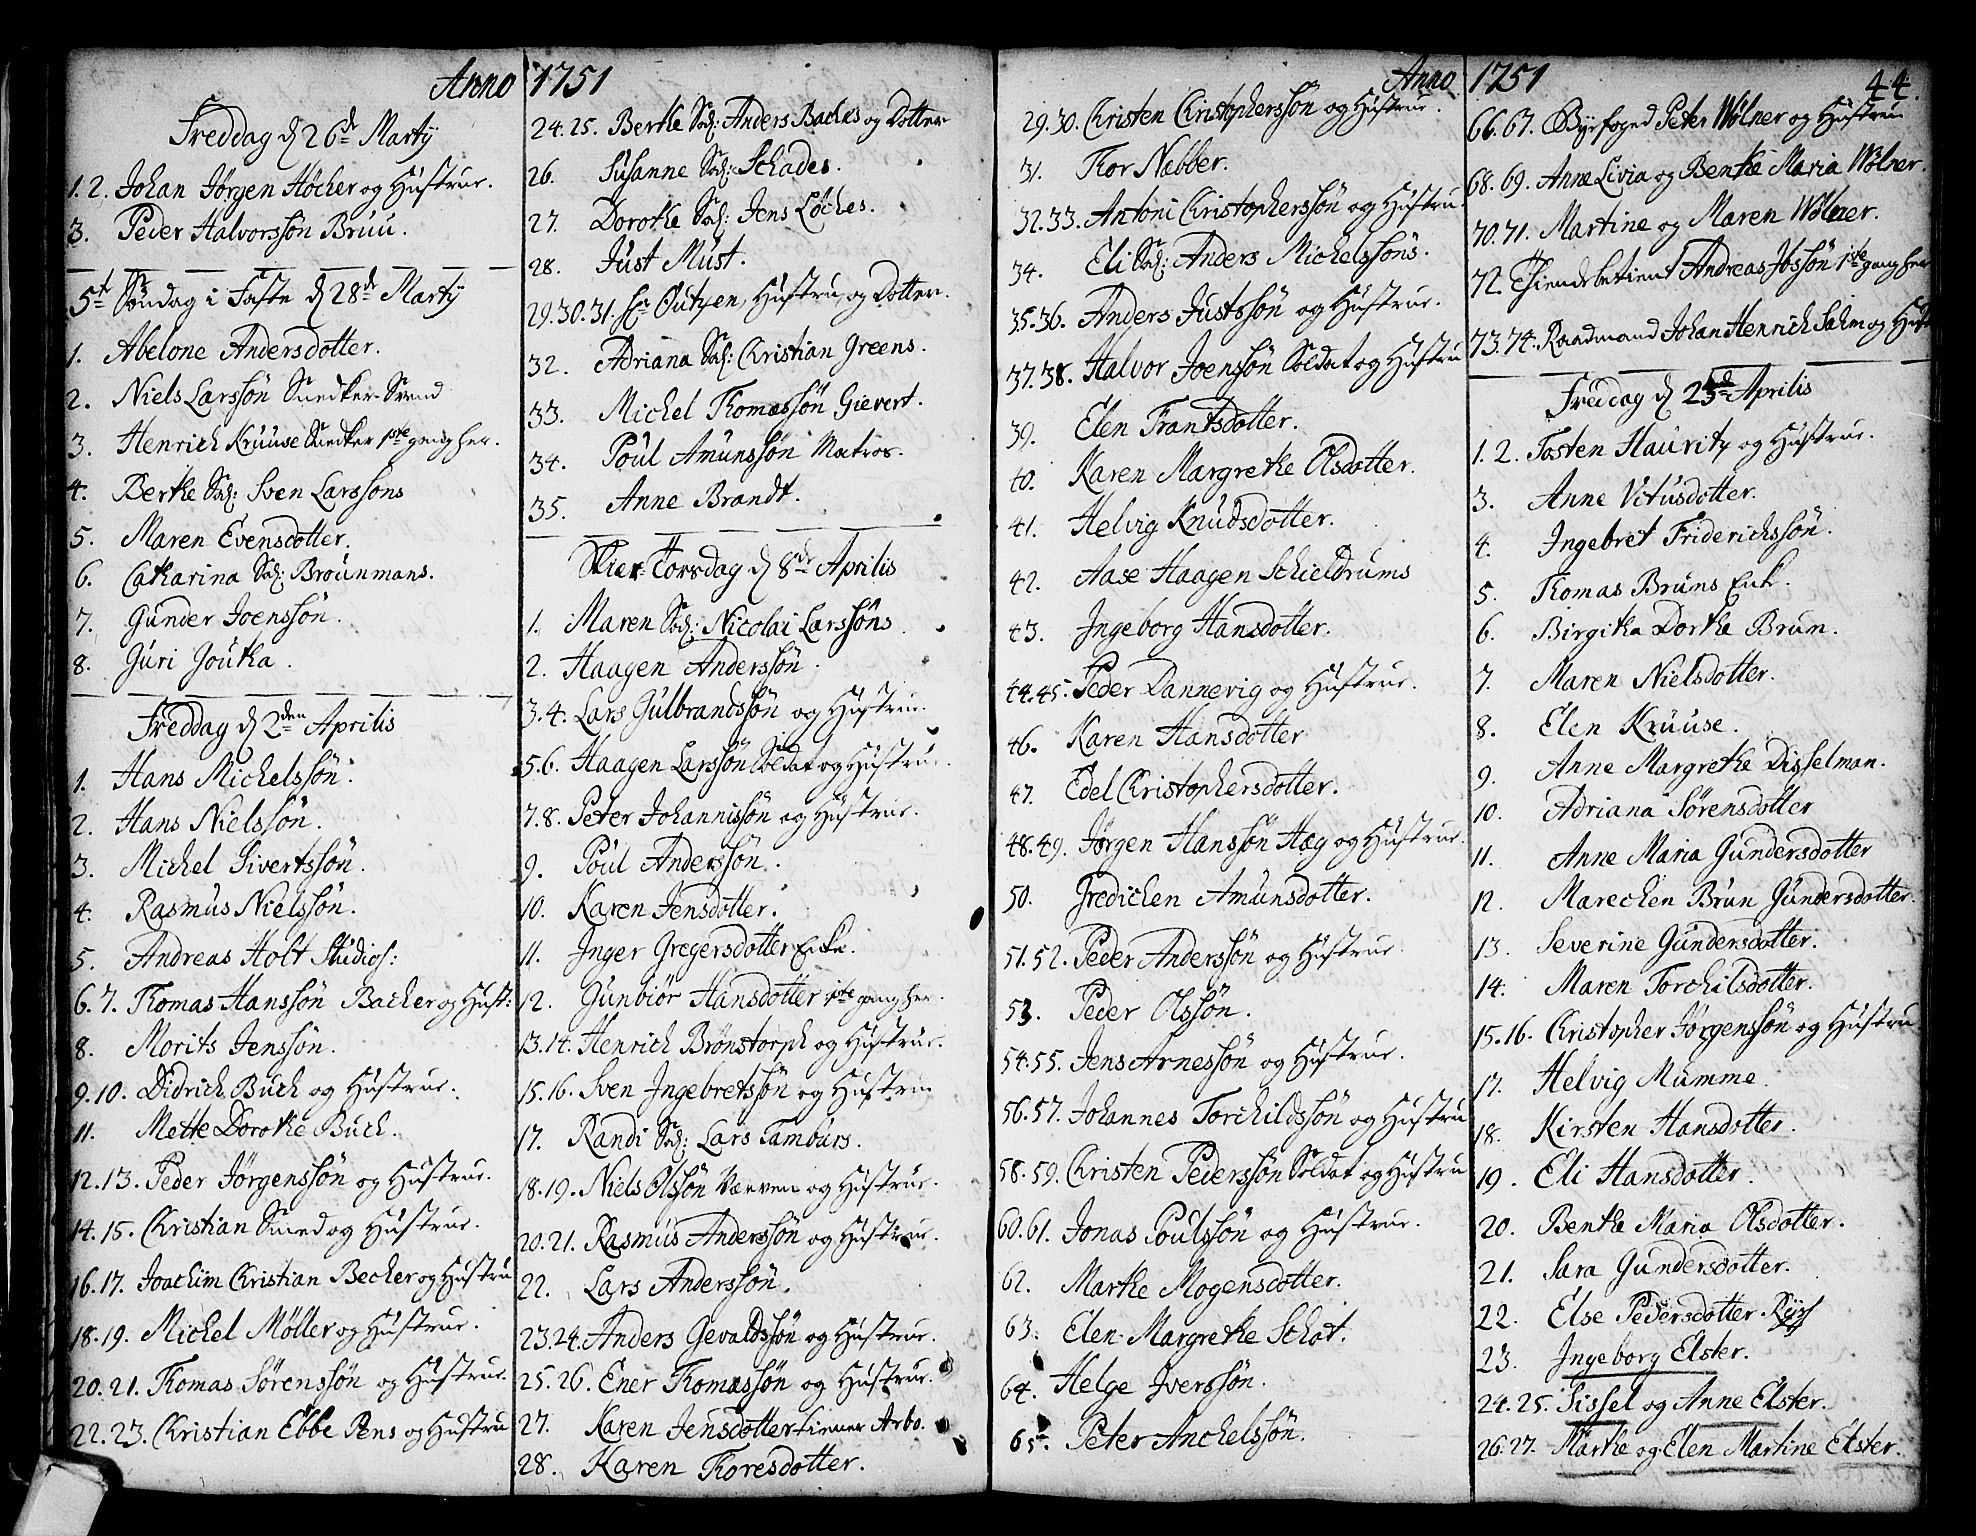 Anno 1751
Freddag d 26d Martij
1. 2. Johan Jörgen Höcher og Hustrue.
3. Peder Halvorssön Bruu.
5t Söndag i Faste d 28d Martij
1. Abelone Andersdotter.
2. Niels Larssön Snedker-Svend
3. Henrich Kruuse Snedker 1ste gang her.
4. Berthe Sal: Sven Larssons
5. Maren Evensdotter.
6. Catharina Sal: Brounmans.
7. Gunder Joenssön.
8. Guri Joutha.
Freddag d 2den Aprilis
1. Hans Michelssön.
2. Hans Nielssön.
3. Michel Sivertssön.
4. Rasmus Nielssön.
5. Andreas Holt Studios:
6. 7. Thomas Hanssön Backer og Hust:
8. Morits Jenssön.
9. 10. Didrich Buch og Hustrue.
11. Mette Dorothe Buch.
12. 13. Peder Jörgenssön og Hustrue.
14. 15. Christian Smed og Hustrue.
16. 17. Joachim Christian Becker og Hustru
18. 19. Michel Möller og Hustrue.
20. 21. Thomas Sörenssön og Hustrue.
22. 23. Christian Ebbe Pens og Hustru
24. 25. Berthe Sal: Anders Backes og Dotter
26. Susanne Sal: Schades.
27. Dorothe Sal: Jens Löches.
28. Just Must.
29. 30. 31. Hr Outzen, Hustru og Dotter.
32. Adriana Sal: Christian Greens.
33. Michel Thomæssön Gievert.
34. Poul Amunssön Matros.
35. Anne Brandt.
Skier-Torsdag d 8de Aprilis
1. Maren Sal: Nicolai Larssöns
2. Haagen Anderssön.
3. 4. Lars Gulbrandssön og Hustrue.
5. 6. Haagen Larssön Soldat og Hustrue.
7. 8. Peter Johannissön og Hustrue.
9. Poul Anderssön.
10. Karen Jensdotter.
11. Inger Gregersdotter Enke.
12. Gunbiör Hansdotter 1ste gang her.
13. 14. Henrich Brönstorph og Hustrue.
15. 16. Sven Ingebretssön og Hustrue
17. Randi Sal: Lars Tambürs.
18. 19. Niels Olssön Værven og Hustrue.
20. 21. Rasmus Anderssön og Hustrue.
22. Lars Anderssön.
23. 24. Anders Gevaldssön og Hustrue.
25. 26. Ener Thomæssön og Hustrue.
27. Karen Jensdotter tiener Arbo.
28. Karen Thoresdotter.
Anno 1751 44.
29. 30. Christen Christopherssön og Hustrue.
31. Thor Næbber.
32. 33. Antoni Christopherssön og Hustru
34. Eli Sal: Anders Michelssöns.
35. 36. Anders Justssön og Hustrue.
37. 38. Halvor Joenssön Soldat og Hustru
39. Elen Frantsdotter.
40. Karen Margrethe Olsdotter.
41. Helvig Knudsdotter.
42. Aase Haagen Schieldrums
43. Ingeborg Hansdotter.
44. 45. Peder Dannevig og Hustrue.
46. Karen Hansdotter
47. Edel Christophersdotter.
48. 49. Jörgen Hanssön Hæg og Hustrue.
50. Gredichen Amunsdotter.
51. 52. Peder Anderssön og Hustrue
53. Peder Olssön.
54. 55. Jens Arnessön og Hustrue.
56. 57. Johannes Torchildssön og Hustru
58. 59. Christen Pederssön Soldat og Hustru
60. 61. Jonas Poulssön og Hustrue.
62. Marthe Mogensdotter.
63. Elen Margrethe Schot.
64. Helge Iverssön.
65. Peter Anchelssön.
66. 67. Byefoged Peter Wölner og Hustrue
68. 69. Anne Livia og Benthe Maria Wölner.
70. 71. Martine og Maren Wölner.
72. Thiendebetient Andreas Ibssön 1ste gang her
73. 74. Raadmand Johan Henrich Sahm og Hustru
Freddag d 23de Aprilis
1. 2. Tosten Hauritz og Hustrue.
3. Anne Vitusdotter.
4. Ingebret Friderichssön.
5. Thomas Bruns Enke.
6. Birgitha Dorthe Brun.
7. Maren Nielsdotter.
8. Elen Kruuse.
9. Anne Margrethe Disselman.
10. Adriana Sörensdotter
11. Anne Maria Gundersdotter
12. Marechen Brun Gundersdotter.
13. Severine Gundersdotter.
14. Maren Torchilsdotter.
15. 16. Christopher Jörgenssön og Hustru
17. Helvig Mumme.
18. Kirsten Hansdotter.
19. Eli Hansdotter.
20. Benthe Maria Olsdotter.
21. Sara Gundersdotter.
22. Else Pedersdotter
23. Ingeborg Elster.
24. 25. Sissel og Anne Elster.
26. 27. Marthe og Elen Martine Elster.